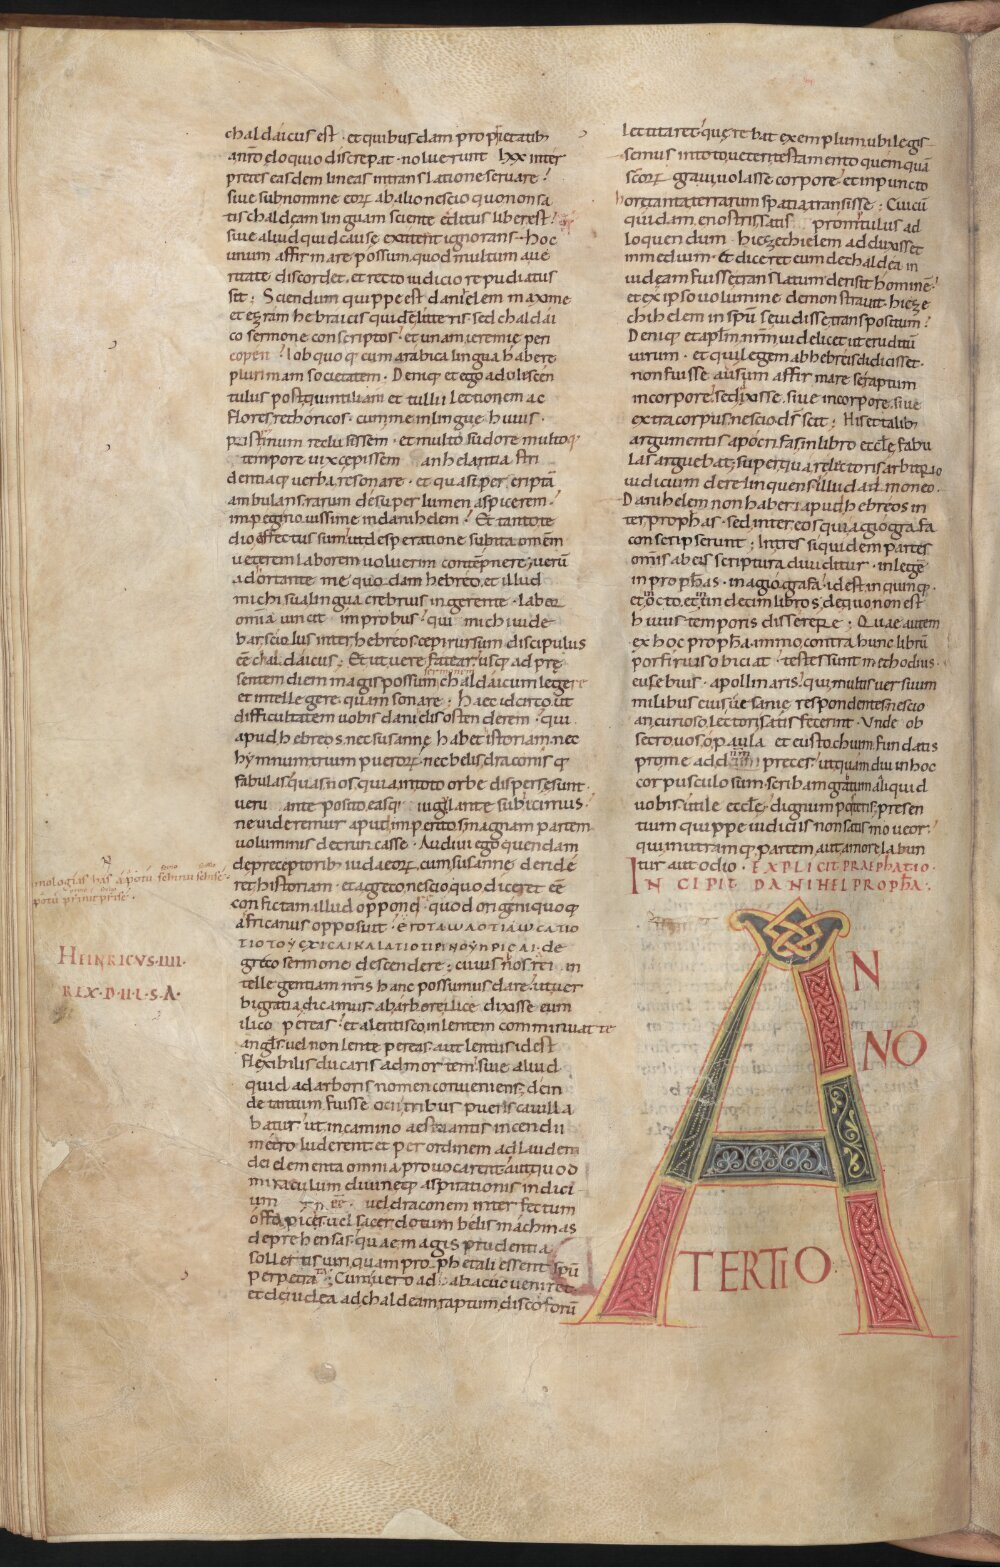 chaldaicus est · et quibusdam proprietatib
a nr̄o eloquio discrepat · noluerunt lxx inter
pretes easdem lineas in translatione servare ·
sive sub nomine eorꝝ ab alio nescio quo non sa
tis chaldeam linguam sciente editus liber est ·
sive aliud quid cause extiterit ignorans · hoc
unum affirmare possum quod multum a ve
ritate discordet · et recto iudicio repudiatus
sit ; Sciendum quippe est danielem maxime
et ezram hebraicis quidē litteris sed chaldai
co sermone conscriptos · et unam ieremie peri
copen · Iob quoq; cum arabica lingua habere
plurimam societatem · Deniq; et ego aduliscen
tulus post quintiliani et tullii lectionem ac
flores rethoricos · cum me in lingue huius ·
pristinum reclusissem · et multo sudore multoq;
tempore vix cepissem anhelantia stri
dentiaq; verba resonare · et quasi per criptā
ambulans rarum desuper lumen aspicerem ·
impegi novissime in danihelem · Et tanto te
dio affectus sum ut desperatione subita omēm
veterem laborem voluerim contēpnere ; verū
adortante me quodam hebreo · et illud
michi sua lingua crebrius ingerente · labor
omīa vincit improbus · qui michi vide
bar sciolus inter hebreos cepi rursum discipulus
eē chaldaicus ; Et ut vere fatear usq; ad prę
sermonem
sentem diem magis possum chaldaicum legere
et intellegere quam sonare ; Haec idcirco ut
difficultatem vobis danielis ostenderem · qui
apud hebreos nec susannę habet istoriam · nec
hymnum trium puerorꝝ · nec belis draconisq;
fabulas quas nos quia in toto orbe disperse sunt
veru ante posito easq; iugulante subicimus ·
ne videremur apud imperitos magnam partem
voluminis detruncasse · Audivi ego quendam
de preceptorib iudaeorꝝ cum susanne deride
ret historiam · et a greco nescio quo diceret eē
confictam illud opponē quod origeni quoq;
africanus opposuit ·
de
greco sermone descendere ; cuius
in
tellegentiam nr̄is hanc possumus dare · ut ver
bi gratia dicamus · ab arbore ilice dixisse eum
ilico pereas · et a lentisco in lentem comminuat te
angls̄ vel non lente pereas · aut lentus id est
flexibilis ducaris ad mortem · sive aliud
quid ad arboris nomen conveniens ; dein
de tantum fuisse ocii tribus pueris cavilla
batur · ut in camino aestuantis incendii
metro luderent · et per ordinem ad laudem
dei elementa omnia provocarent · aut quod
miraculum divineq; aspirationis indici
um vel draconem interfectum
offa picis · vel sacerdotum belis machinas
deprehensas · quae magis prudentia
sollertis viri quam prophetali essent spū
perpetrata ; Cum vero ad abacuc veniret
et de iudea ad chaldeam raptum discoforū
HEINRICVS · IIII ·
REX · D · II · L · S · A ·
lectitaret · quęrebat exemplum ubi legis
semus in toto veteri testamento quemquā
scōrꝝ gravi volasse corpore · et in puncto
horę tanta terrarum spatia transisse ; Cui cū
quidam e nostris satis promtulus ad
loquendum · hiezechielem adduxisset
in medium · et diceret eum de chaldea in
iudeam fuisse translatum · derisit hominē ·
et ex ipso volumine demonstravit · hieze
chihelem in spū se vidisse transpositum ·
Deniq; et aplm̄ nr̄m videlicet ut eruditū
virum · et qui legem ab hebreis didicisset ·
non fuisse ausum affirmare se raptum
in corpore · sed dixisse · sive in corpore · sive
extra corpus nescio · ds̄ scit ; His et talib
argumentis apocrifas in libro ecclę fabu
las arguebat · super qua re lectoris arbitrio
iudicium derelinquens · illud admoneo ·
Danihelem non haberi apud hebreos in
ter prophas · sed inter eos qui agiografa
conscripserunt ; In tres siquidem partes
omīs ab eis scriptura dividitur · in legē
in prophas · in agiografa · id est in quinq; ·
et octo · et undecim libros · de quo non est
huius temporis disserere ; Quae autem
ex hoc propha · immo contra hunc librū
porfirius obiciat · testes sunt methodius ·
eusebius · apollinaris · qui multis versuum
milibus eius vesanię respondentes nescio
an curioso lectori satis fecerint · Unde ob
secro vos o paula et eustochium · fundatis
pro me ad dn̄m preces · ut quam diu in hoc
corpusculo sum · scribam gratum aliquid
vobis · utile ecclę · dignum posteris · presen
tium quippe iudiciis non satis moveor ·
qui in utramq; partem aut amore labun
tur aut odio · EXPLICIT PRAEPHATIO ·
INCIPIT DANIHEL PROPHA ·
AN
NO
TERTIO